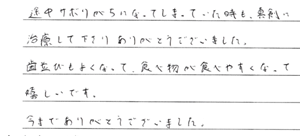 途中サボりがちになってしまっていた時も、真剣に
治療して下さりありがとうございました。
歯並びもよくなって、食べ物が食べやすくなって
嬉しいです。
今までありがとうございました。